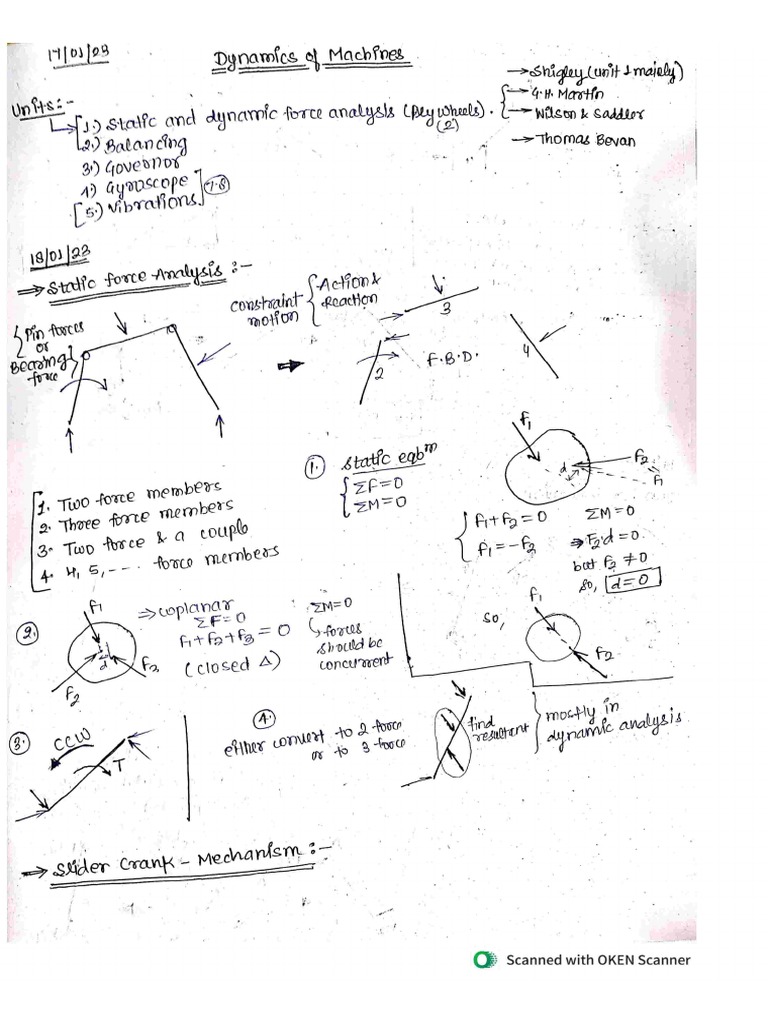 17/01/23
Dynamics of Machines
→ Shigley (unit 1 mainly)
→ G.H. Martin
→ Wilson & Saddler
→ Thomas Bevan
Units:-
1.) Static and dynamic force analysis (fly wheels).
(2)
2.) Balancing
3.) Governor
4.) Gyroscope
5.) Vibrations
7-8
18/01/23
⇒ Static force Analysis :-
Pin forces
or
Bearing
force
constraint
motion
Action &
Reaction
3
2
F.B.D.
4
1. Two force members
2. Three force members
3. Two force & a couple
4. 4, 5, --- force members
1. Static eqbm
ΣF=0
ΣM=0
f1
d
F2
F1
F1+F2=0
f1=-F2
ΣM=0
⇒ F2·d=0
but F2 ≠0
so, d=0
so,
f1
F2
2.
F1
d
F3
F2
⇒ coplanar
ΣF=0
F1+F2+F3=0
(closed Δ)
ΣM=0
forces
should be
concurrent
3.
CCW
T
4.
either convert to 2 force
or to 3 force
find
resultant
mostly in
dynamic analysis
→ Slider Crank - Mechanism :-
Scanned with OKEN Scanner